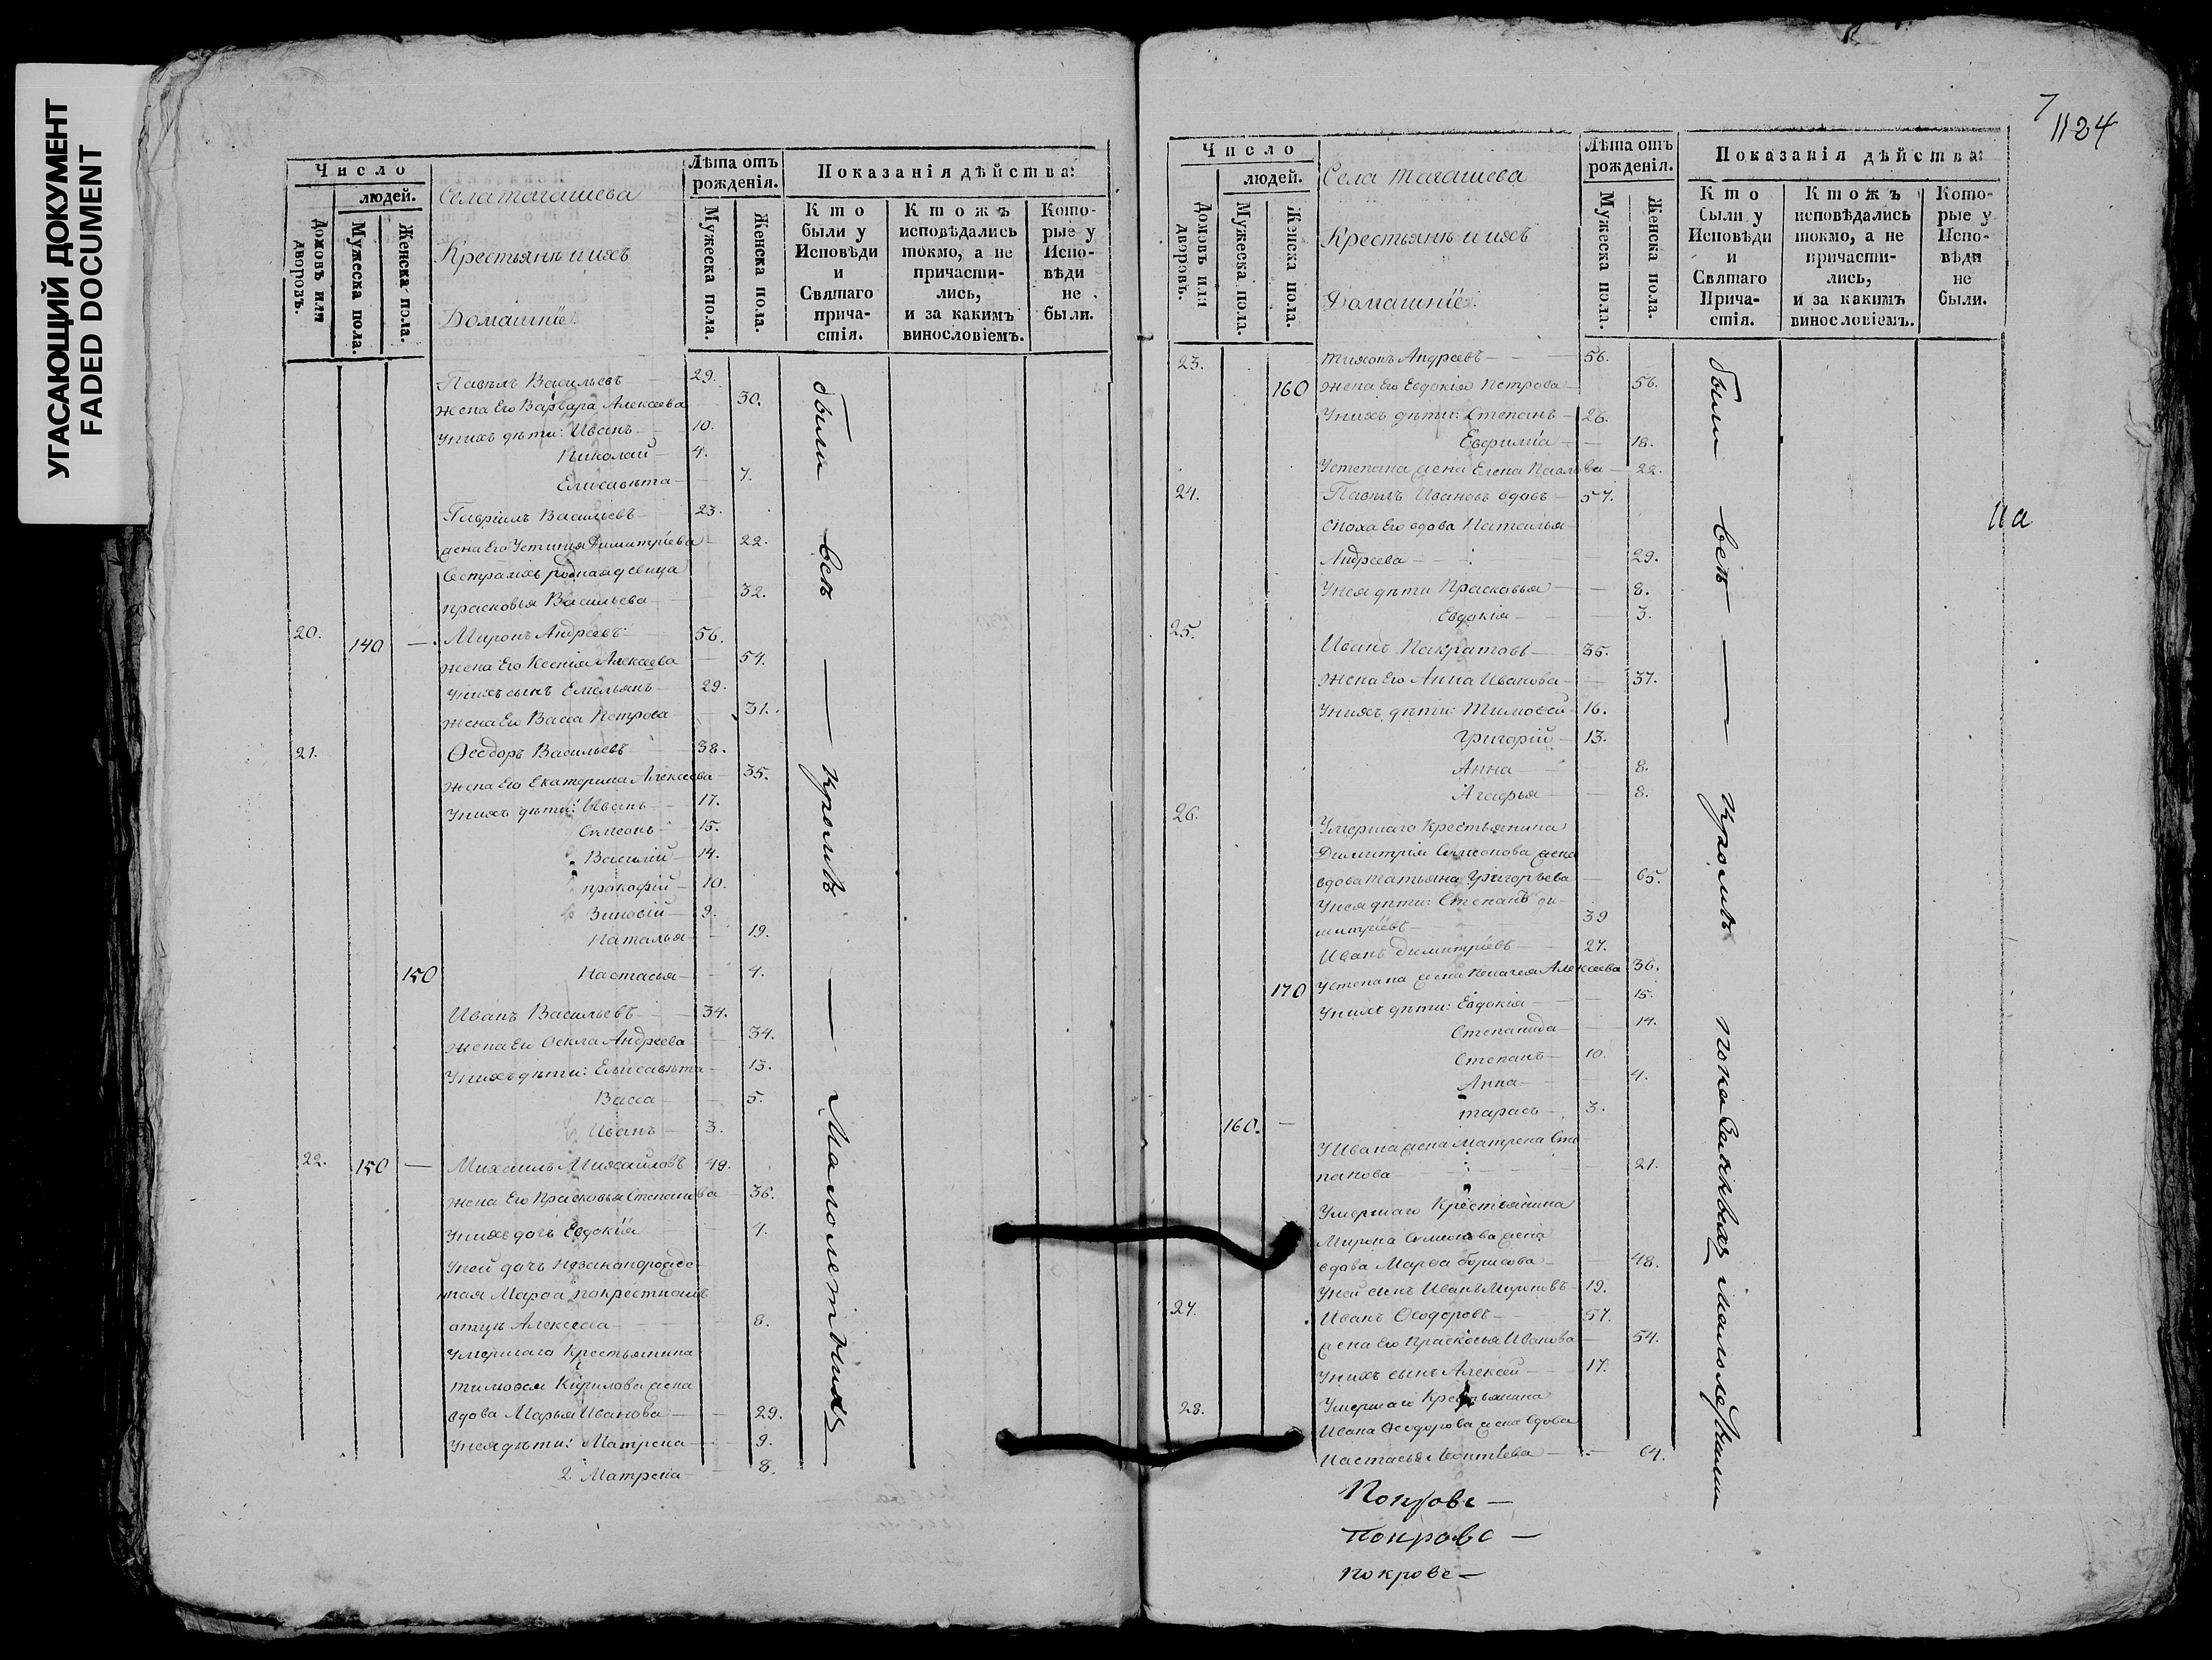 УГАСАЮЩИЙ ДОКУМЕНТ
FADED DOCUMENT
Число
людей.
Домовъ или дворовъ.
Мужеска пола.
Женска пола.
Села Тагашева
Крестьянъ и ихъ
Домашніе.
Лѣта отъ рожденія.
Мужеска пола.
Женска пола.
Показанія дѣйства:
Кто были у Исповѣди и Святаго прича-стія.
Ктожъ исповѣдались токмо, а не причасти-лись, и за какимъ винословіемъ.
Кото-рые у Испо-вѣди не были.
Павелъ Васильевъ 29.
жена Его Варвара Алексеева 30.
У нихъ дѣти: Иванъ 10.
Николай 4.
Елисавѣта 7.
Гавріилъ Васильевъ 23.
жена Его Устинія Димитріева 22.
Сестра ихъ родная девица
Прасковья Васильева 32.
20. 140 — Миронъ Андреевъ 56.
жена Его Ксенія Алексеева 54.
У нихъ сынъ Емельянъ 29.
жена Его Васса Петрова 31.
21. Ѳеодоръ Васильевъ 38.
жена Его Екатерина Алексеева 35.
У нихъ дѣти: Иванъ 17.
Симеонъ 15.
Василій 14.
Прокофій 10.
Зиновій 9.
Наталья 19.
150 Настасья 4.
Иванъ Васильевъ 34.
жена Его Ѳекла Андреева 34.
У нихъ дѣти: Елисавѣта 13.
Васса 5.
Иванъ 3.
22. 150 — Михаилъ Михайловъ 49.
жена Его Прасковья Степанова 36.
У нихъ дочь Евдокія 1.
У ней дочь незаконорожде-
нная Марѳа по крестномъ
отцѣ Алексеева 8.
Умершаго Крестьянина
Тимоѳея Кирилова жена
вдова Марья Иванова 29.
У нея дѣти: Матрена 9.
2. Матрена 8.
были всѣ — кромѣ — Малолетныхъ
7
1124
11а
Число
людей.
Домовъ или дворовъ.
Мужеска пола.
Женска пола.
Села Тагашева
Крестьянъ и ихъ
Домашніе.
Лѣта отъ рожденія.
Мужеска пола.
Женска пола.
Показанія дѣйства:
Кто были у Исповѣди и Святаго Прича-стія.
Ктожъ исповѣдались токмо, а не причасти-лись, и за какимъ винословіемъ.
Кото-рые у Испо-вѣди не были.
23. Тихонъ Андреевъ 56.
160 жена Его Евдокія Петрова 56.
У нихъ дѣти: Степанъ 26.
Евфимія 18.
У степана жена Елена Павлова 22.
24. Павелъ Ивановъ вдовъ 57.
сноха Его вдова Наталья
Андреева 29.
У нея дѣти Прасковья 8.
Евдокія 3.
25. Иванъ Панкратовъ 35.
жена Его Анна Иванова 37.
У нихъ дѣти: Тимоѳей 16.
Григорій 13.
Анна 8.
Агафья 8.
26. Умершаго Крестьянина
Димитрія Симеонова жена
вдова Татьяна Григорьева 65.
У нея дѣти: Степанъ Ди-
митріевъ 39
Иванъ Димитріевъ 27.
170 У степана жена Пелагея Алексеева 36.
У нихъ дѣти: Евдокія 15.
Степанида 14.
Степанъ 10.
Анна 4.
160. — Тарасъ 3.
У Ивана жена Матрена Сте-
панова 21.
Умершаго Крестьянина
Мирона Симеонова жена
вдова Марѳа Борисова 48.
У ней сынъ Иванъ Мироновъ 19.
27. Иванъ Ѳеодоровъ 57.
жена Его Прасковья Иванова 54.
У нихъ сынъ Алексей 17.
28. Умершаго Крестьянина
Ивана Ѳеодорова жена вдова
Настасья Леонтіева 64.
были всѣ — кромѣ
Покрове —
Покрове —
Покрове —